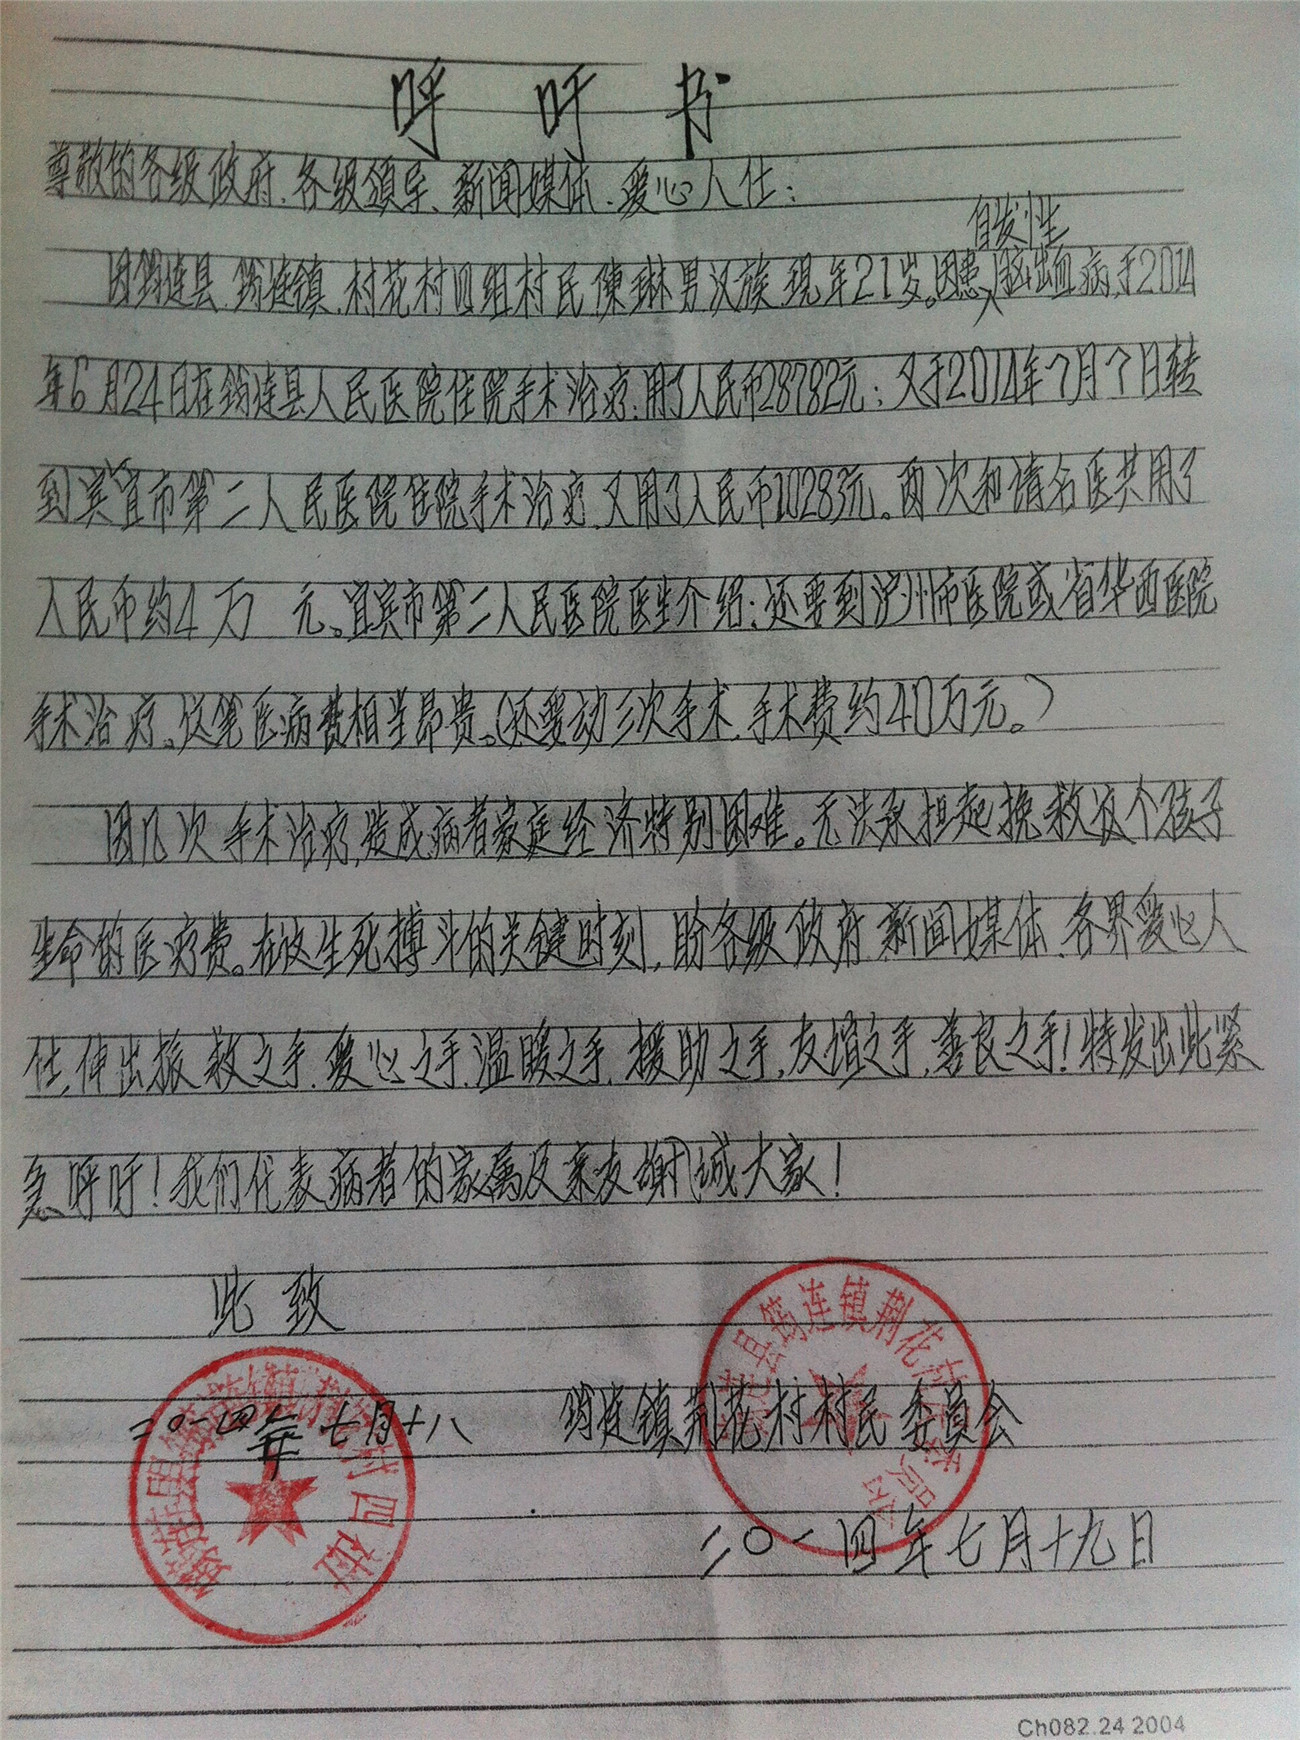 呼吁书
尊敬的各级政府、各级领导、新闻媒体、爱心人仕：
自发性
因筠连县、筠连镇、村花村四组村民陳琳男汉族现年21岁。因患脑出血病,于2014
年6月24日在筠连县人民医院住院手术治疗,用了人民币28782元；又于2014年7月7日转
到宾宜市第二人民医院住院手术治疗,又用了人民币10283元。两次和请名医共用了
人民币约4万 元。宜宾市第二人民医院医生介绍:还要到泸州市医院或省华西医院
手术治疗。这笔医病费相当昂贵。(还要动三次手术,手术费约40万元。)
因几次手术治疗,造成病者家庭经济特别困难。无法承担起挽救这个孩子
生命的医疗费。在这生死搏斗的关键时刻,盼各级政府、新闻媒体、各界爱心人
仕,伸出振救之手,爱心之手,温暖之手,援助之手,友谊之手,善良之手!特发出此紧
急呼吁!我们代表病者的家属及亲友谢诚大家!
此致
县筠连镇荆花村
二〇一四年七月十八
筠连镇荆花村村民委员会
村四组
二〇一四年七月十九日
Ch082.24 2004